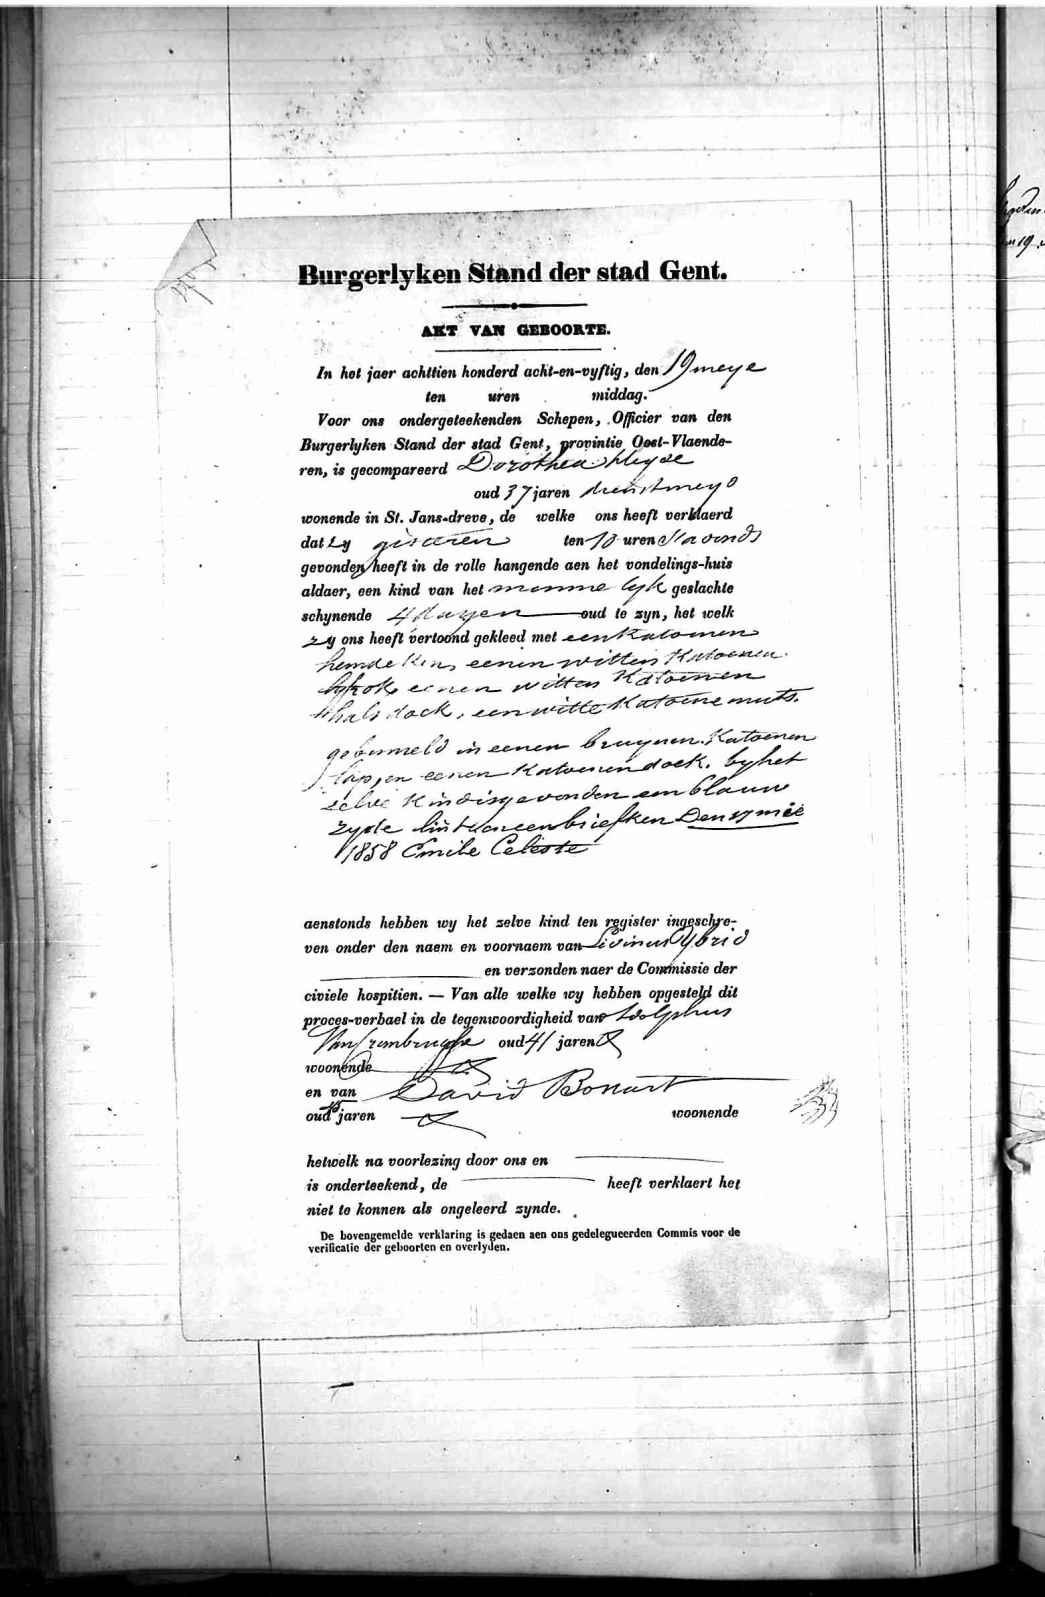 Burgerlyken Stand der stad Gent.
AKT VAN GEBOORTE.
In het jaer achttien honderd acht-en-vyftig, den 19 meye
ten uren middag.
Voor ons ondergeteekenden Schepen, Officier van den
Burgerlyken Stand der stad Gent, provintie Oost-Vlaende-
ren, is gecompareerd Dorothea
oud 37 jaren dienstmeyd
wonende in St. Jans-dreve, de welke ons heeft verklaerd
dat zy gisteren ten 10 uren s'avonds
gevonden heeft in de rolle hangende aen het vondelings-huis
aldaer, een kind van het mannelyk geslachte
schynende 4 dagen oud te zyn, het welk
zy ons heeft vertoond gekleed met een katoenen
hemdeken, eenen witten katoenen
eenen witten katoenen
halsdoek, een witte katoene muts.
gebusseld in eenen bruynen katoenen
lap, en eenen katoenen doek. by het
zelve kind is gevonden een blauw
zyde lint en een briefken Den 17 mëi
1858 Emile Celeste
aenstonds hebben wy het zelve kind ten register ingeschre-
ven onder den naem en voornaem van Livinus Ybrid
en verzonden naer de Commissie der
civiele hospitien. — Van alle welke wy hebben opgesteld dit
proces-verbael in de tegenwoordigheid van Adolphus
Van Crombrugghe oud 41 jaren
woonende
en van David Bonart
oud jaren woonende
hetwelk na voorlezing door ons en
is onderteekend, de heeft verklaert het
niet te konnen als ongeleerd zynde.
De bovengemelde verklaring is gedaen aen ons gedelegueerden Commis voor de
verificatie der geboorten en overlyden.